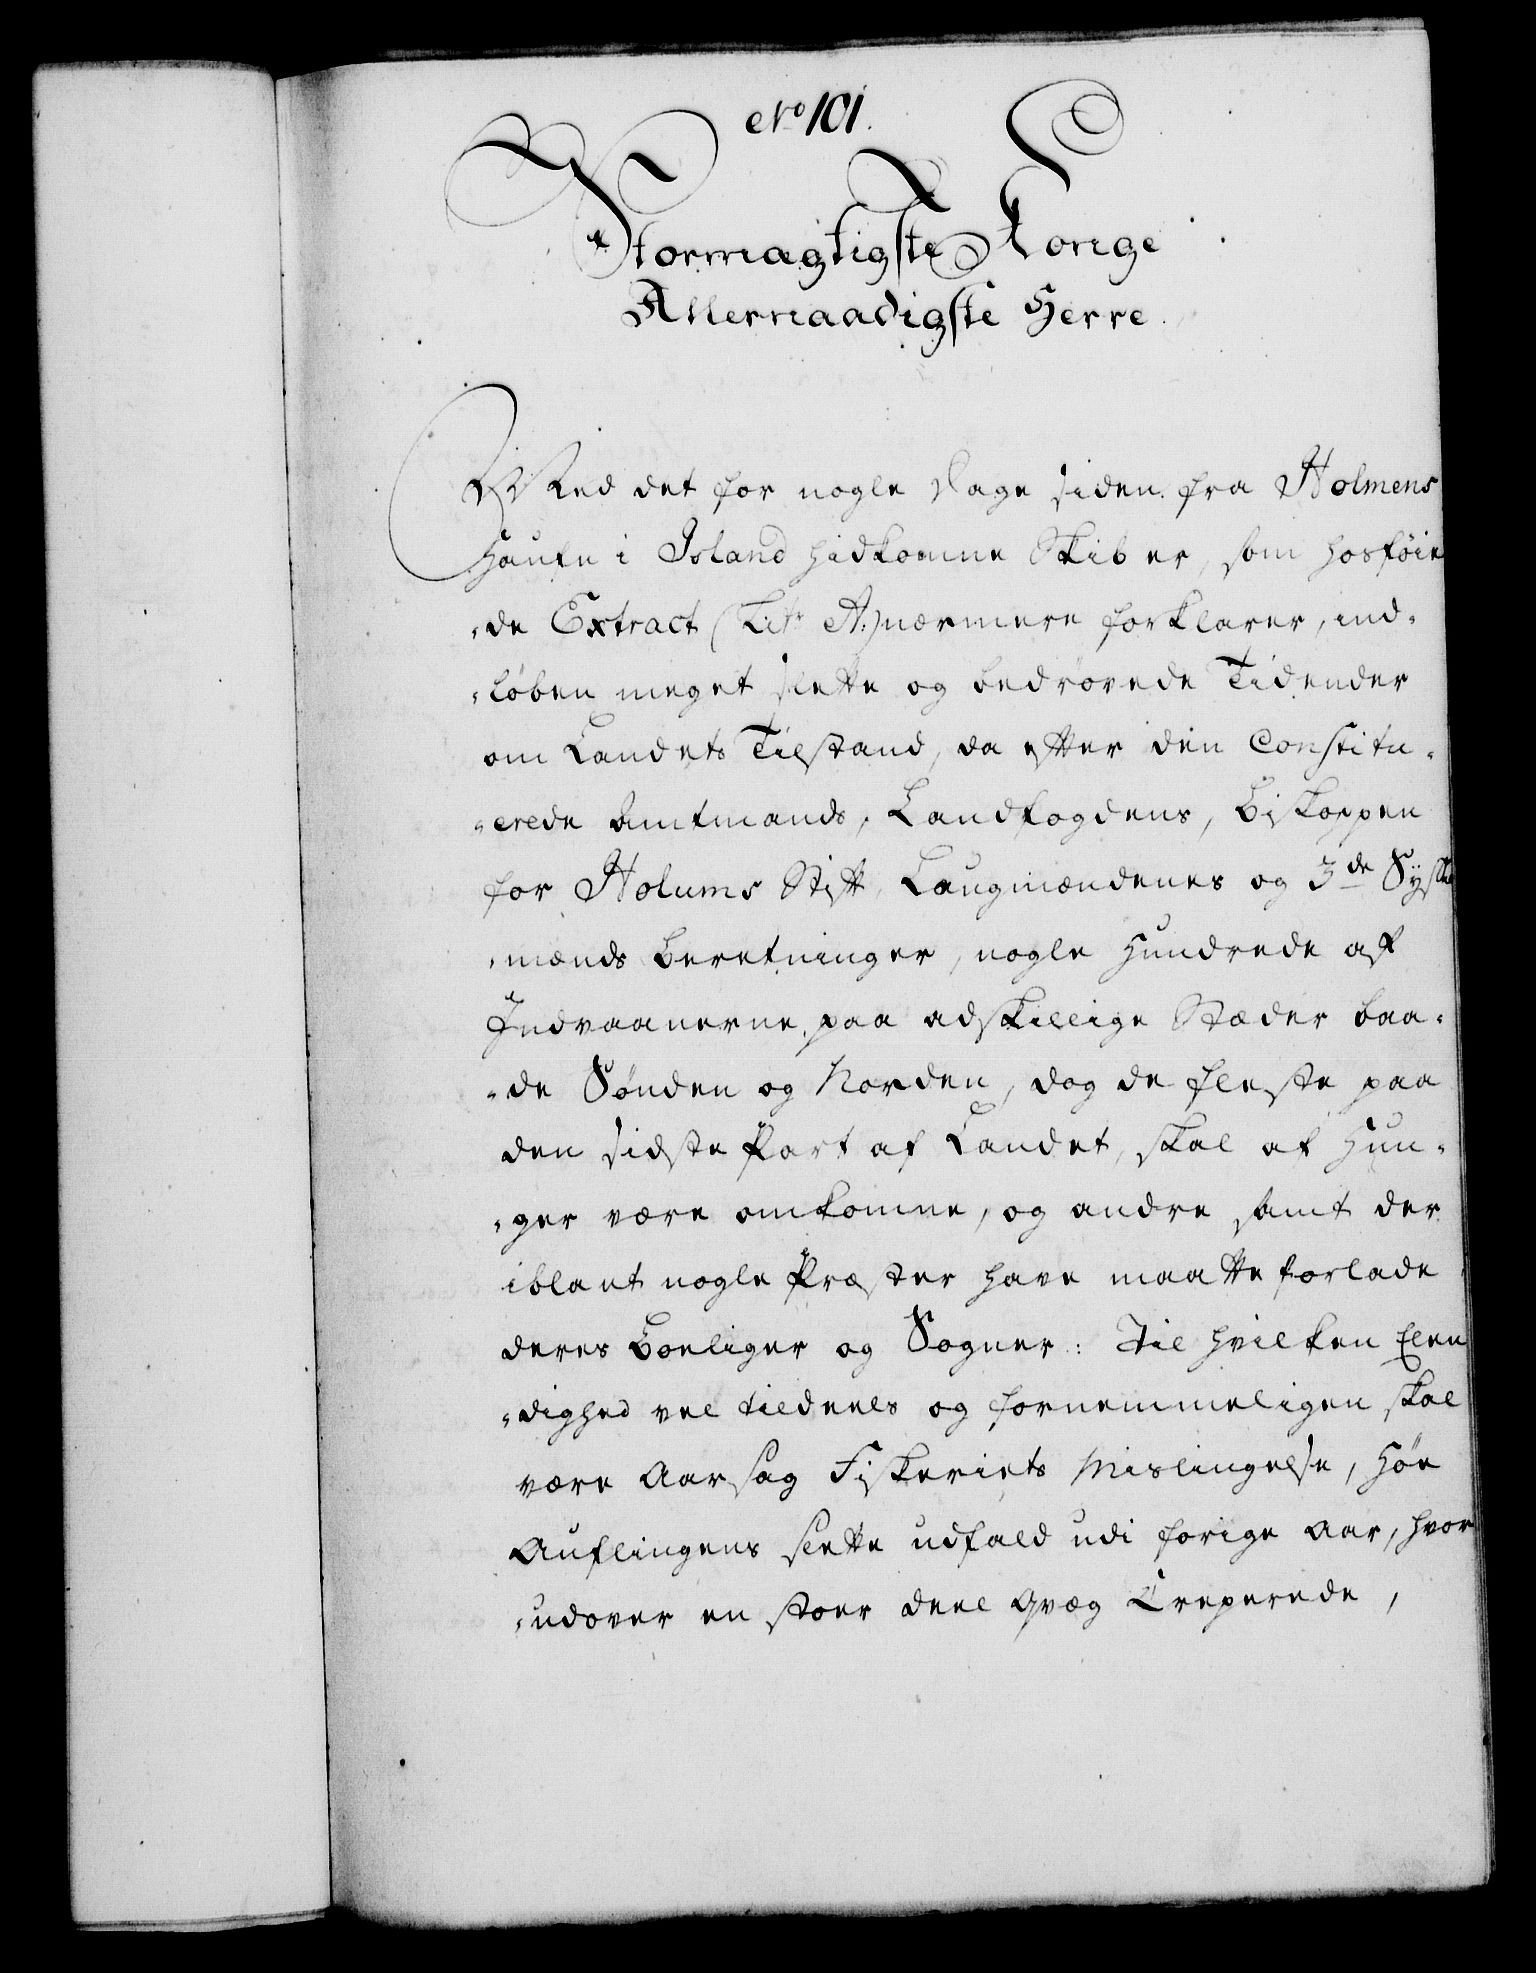 No 101.
Stormægtigste Konge
Allernaadigste Herre.
Wed det for nogle Dage siden fra Holmens
Haufn i Island hidkomne Skib er, som hosføie
-de Extract (Litr A.) nærmere forklarer, ind-
-løben meget slette og bedrøvede Tidender
om Landets Tilstand, da efter den Constitu-
-erede Amtmands, Landfogdens, Biskoppen
for Holums Stift, Laugmændenes og 3de Syssel
-mænds Beretninger, nogle Hundrede af
Indvaanerne paa adskillige Stæder baa-
-de Sønden og Norden, dog de fleste paa
den sidste Part af Landet, skal af Hun-
-ger være omkomne, og andre samt der
iblant nogle Præster have maatte forlade
deres Boeliger og Sogner: Til hvilken Elen
-dighed vel tildeels og fornemmeligen skal
være Aarsag Fiskeriets Mislingelse, Høe
Auflingens slette udfald udi forige Aar, hvor
-udover en stoer deel Qvæg Creperede,